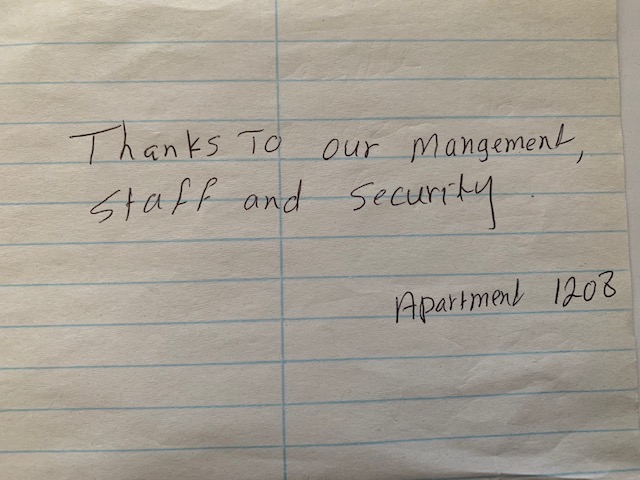 Thanks To our mangement,
staff and security.
Apartment 1208